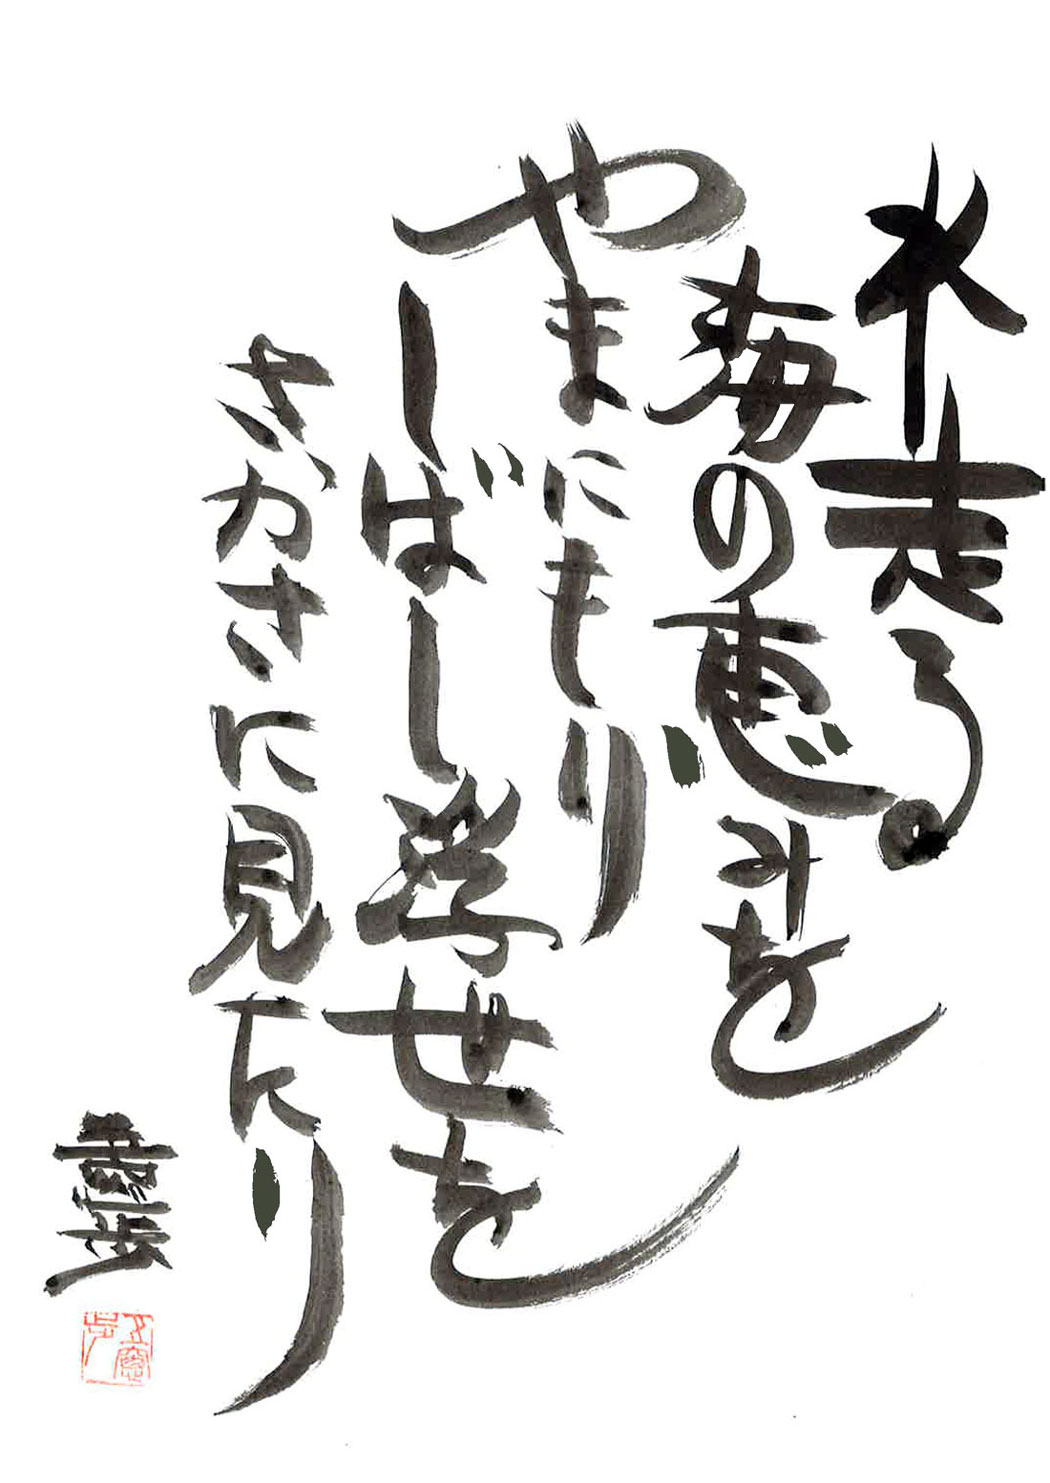 水走る
海の恵みを
やまにもり
しばし浮世を
さかさに見たり